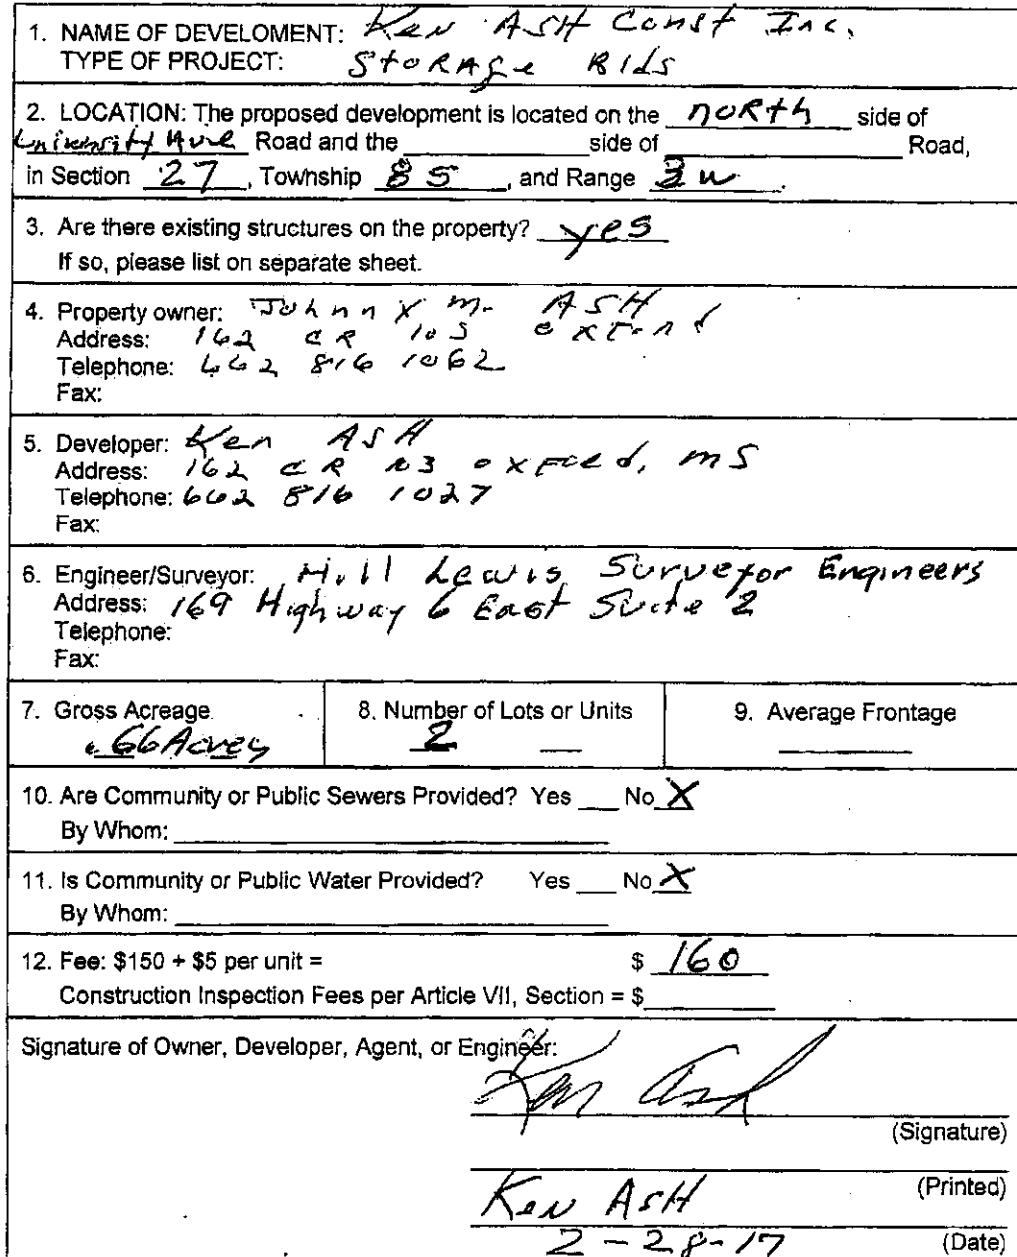 1. NAME OF DEVELOMENT: Ken ASH Const Inc.
TYPE OF PROJECT: StoRAGe Blds
2. LOCATION: The proposed development is located on the noRth side of
University Ave Road and the ____ side of ____ Road,
in Section 27, Township 8 S, and Range 3 w.
3. Are there existing structures on the property? yes
If so, please list on separate sheet.
4. Property owner: Johnny M. ASH
Address: 162 CR 103
Telephone: 662 816 1062
Fax:
5. Developer: Ken ASH
Address: 162 CR 103 oxFord, mS
Telephone: 662 816 1027
Fax:
6. Engineer/Surveyor: Hill Lewis Surveyor Engineers
Address: 169 Highway 6 East Suite 2
Telephone:
Fax:
7. Gross Acreage 8. Number of Lots or Units 9. Average Frontage
.66 Acres 2 __ ____
10. Are Community or Public Sewers Provided? Yes __ No X
By Whom: ____
11. Is Community or Public Water Provided? Yes __ No X
By Whom: ____
12. Fee: $150 + $5 per unit = $ 160
Construction Inspection Fees per Article VII, Section = $____
Signature of Owner, Developer, Agent, or Engineer:
Ken Ash
(Signature)
Ken ASH (Printed)
2-28-17 (Date)